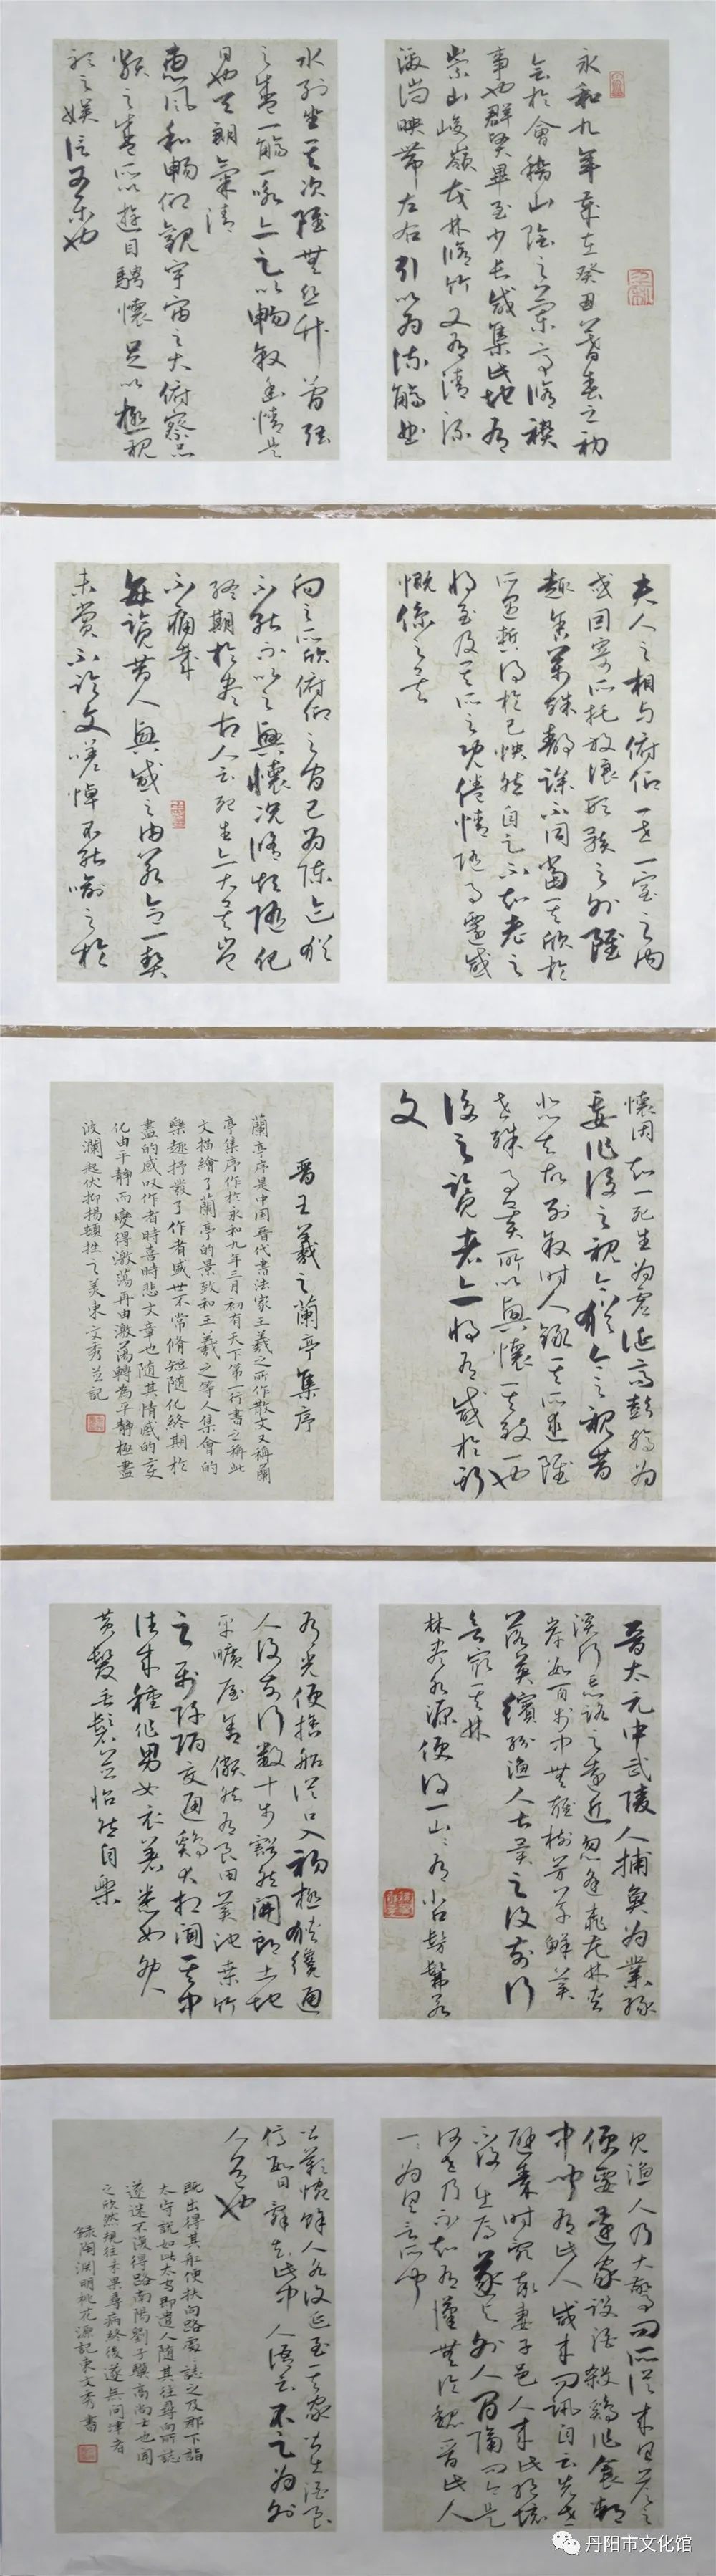 永和九年歲在癸丑暮春之初
會於會稽山陰之蘭亭脩禊
事也群賢畢至少長咸集此地有
崇山峻嶺茂林脩竹又有清流
激湍映帶左右引以為流觴曲
水列坐其次雖無絲竹管弦
之盛一觴一詠亦足以暢敘幽情是
日也天朗氣清
惠風和暢仰觀宇宙之大俯察品
類之盛所以遊目騁懷足以極視
聽之娛信可樂也
夫人之相與俯仰一世一室之內
或因寄所托放浪形骸之外雖
趣舍萬殊靜躁不同當其欣於
所遇暫得於己怏然自足不知老之
將至及其所之既倦情隨事遷感
慨係之矣
向之所欣俯仰之間已為陳迹猶
不能不以之興懷況脩短隨化
終期於盡古人云死生亦大矣豈
不痛哉
每覽昔人興感之由若合一契
未嘗不臨文嗟悼不能喻之於
懷固知一死生為虛誕齊彭殤為
妄作後之視今猶今之視昔
悲夫故列敘時人錄其所述雖
世殊事異所以興懷其致一也
後之覽者亦將有感於斯
文
晋王羲之蘭亭集序
蘭亭序是中国晉代書法家王羲之所作散文又稱蘭
亭集序作於永和九年三月初有天下第一行書之稱此
文描繪了蘭亭的景致和王羲之等人集會的
樂趣抒發了作者盛世不常脩短隨化終期於
盡的感叹作者時喜時悲文章也隨其情感的变
化由平靜而變得激蕩再由激蕩轉為平靜極盡
波瀾起伏抑揚頓挫之美東文秀並記
晉太元中武陵人捕魚為業緣
溪行忘路之遠近忽逢桃花林夾
岸數百步中無雜樹芳草鮮美
落英繽紛漁人甚異之復前行
欲窮其林
林盡水源便得一山山有小口髣髴若
有光便捨船從口入初極狹纔通
人復前行數十步豁然開朗土地
平曠屋舍儼然有良田美池桑竹
之屬阡陌交通鷄犬相聞其中
往來種作男女衣著悉如外人
黃髮垂髫並怡然自樂
見漁人乃大驚問所從來具答之
便要還家設酒殺鷄作食村
中聞有此人咸來問訊自云先世
避秦時亂率妻子邑人來此絕境
不復出焉遂與外人間隔問今是
何世乃不知有漢無論魏晉此人
一一為具言所聞
皆歎惋餘人各復延至其家皆出酒食
停數日辭去此中人語云不足為外
人道也
既出得其船便扶向路處誌之及郡下詣
太守說如此太守即遣人隨其往尋向所誌
遂迷不復得路南陽劉子驥高尚士也聞
之欣然規往未果尋病終後遂無問津者
錄陶淵明桃花源記東文秀書
丹阳市文化馆